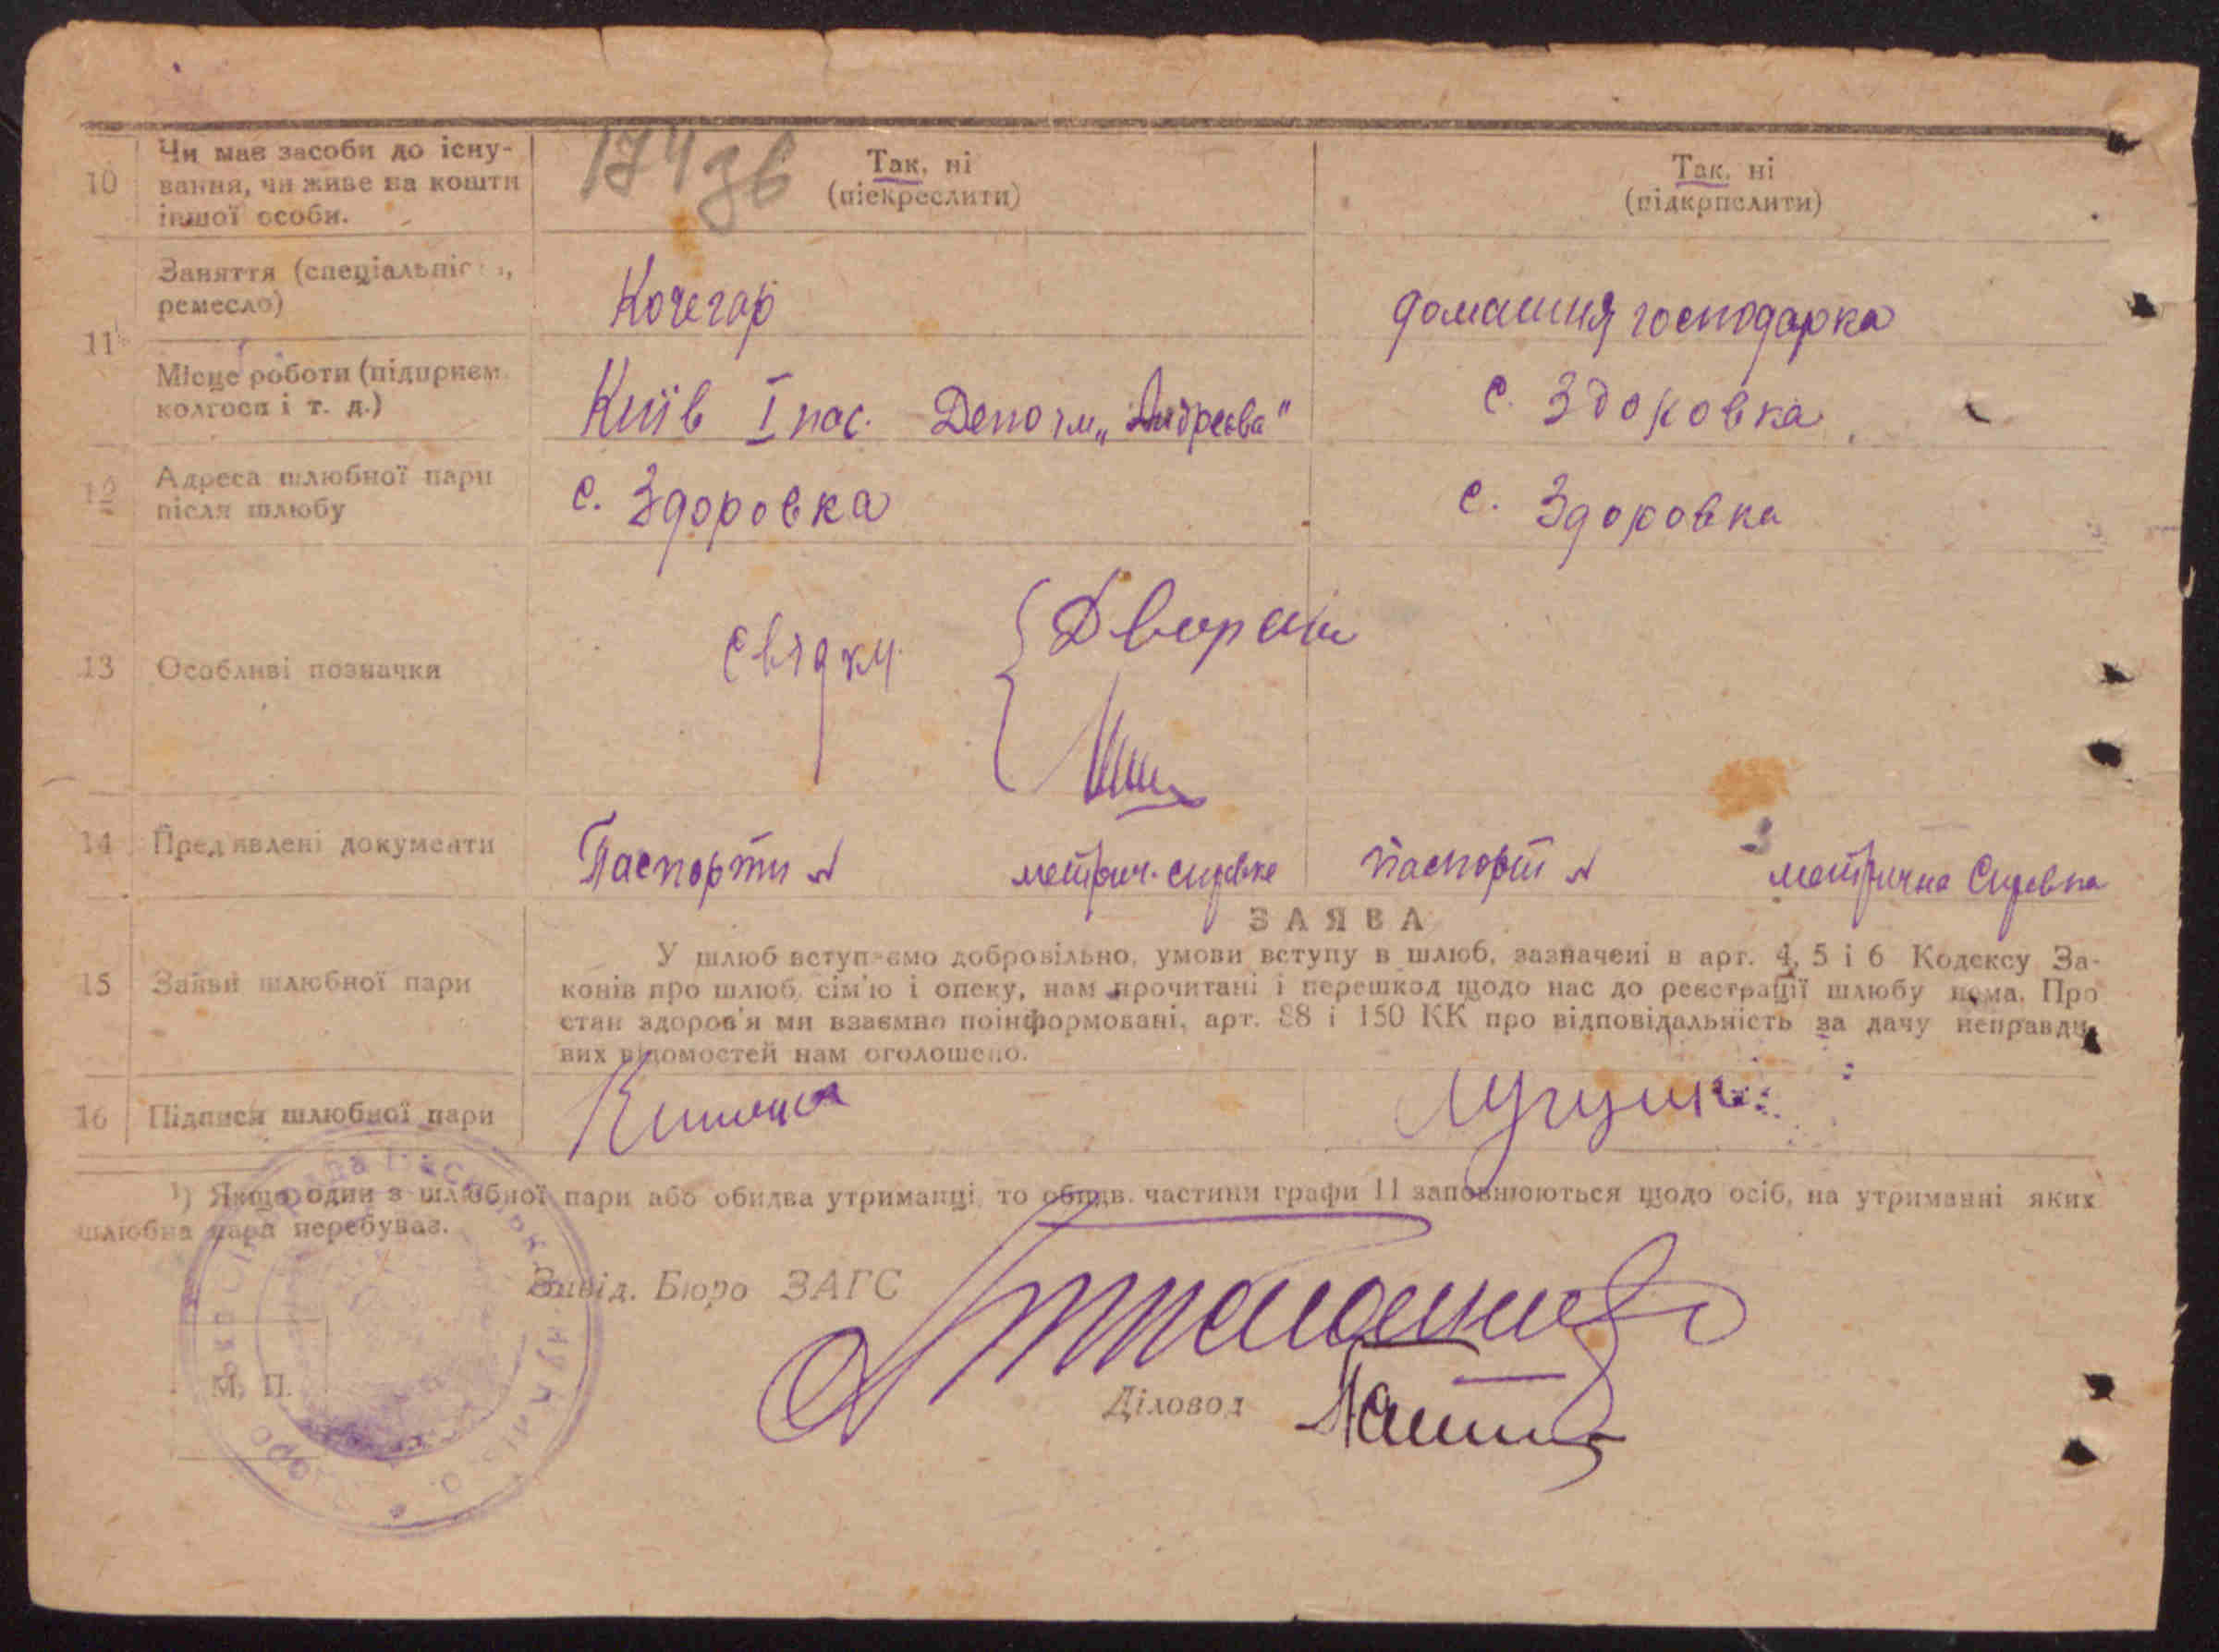 174 зв
10 Чи має засоби до існу-
вання, чи живе на кошти
іншої особи.
Так, ні
(піекреслити)
Так, ні
(підкрпслити)
11¹ Заняття (спеціальніс
ремесло)
Кочегар
домашня господарка
Місце роботи (підприєм.
колгосп і т. д.)
Київ I пас. Депо ім „Андреєва"
с. Здоровка
12 Адреса шлюбної пари
після шлюбу
с. Здоровка
с. Здоровка
13 Особливі позначки
Свядки
Дворан
14 Пред'явлені документи
Паспорти № метрич. справке
паспорт № метрична Справка
ЗАЯВА
15 Заяви шлюбної пари
У шлюб вступаємо добровільно, умови вступу в шлюб, зазначені в арт. 4, 5 і 6 Кодексу За-
конів про шлюб, сім'ю і опеку, нам прочитані і перешкод щодо нас до реєстрації шлюбу нема. Про
стан здоров'я ми взаємно поінформовані, арт. 88 і 150 КК про відповідальність за дачу неправди
вих відомостей нам оголошено.
16 Підписи шлюбної пари
¹) Якщо один з шлюбної пари або обидва утриманці, то обидв. частини графи 11 заповнюються щодо осіб, на утриманні яких
шлюбна пара перебуває.
Завід. Бюро ЗАГС
М. П.
Діловод